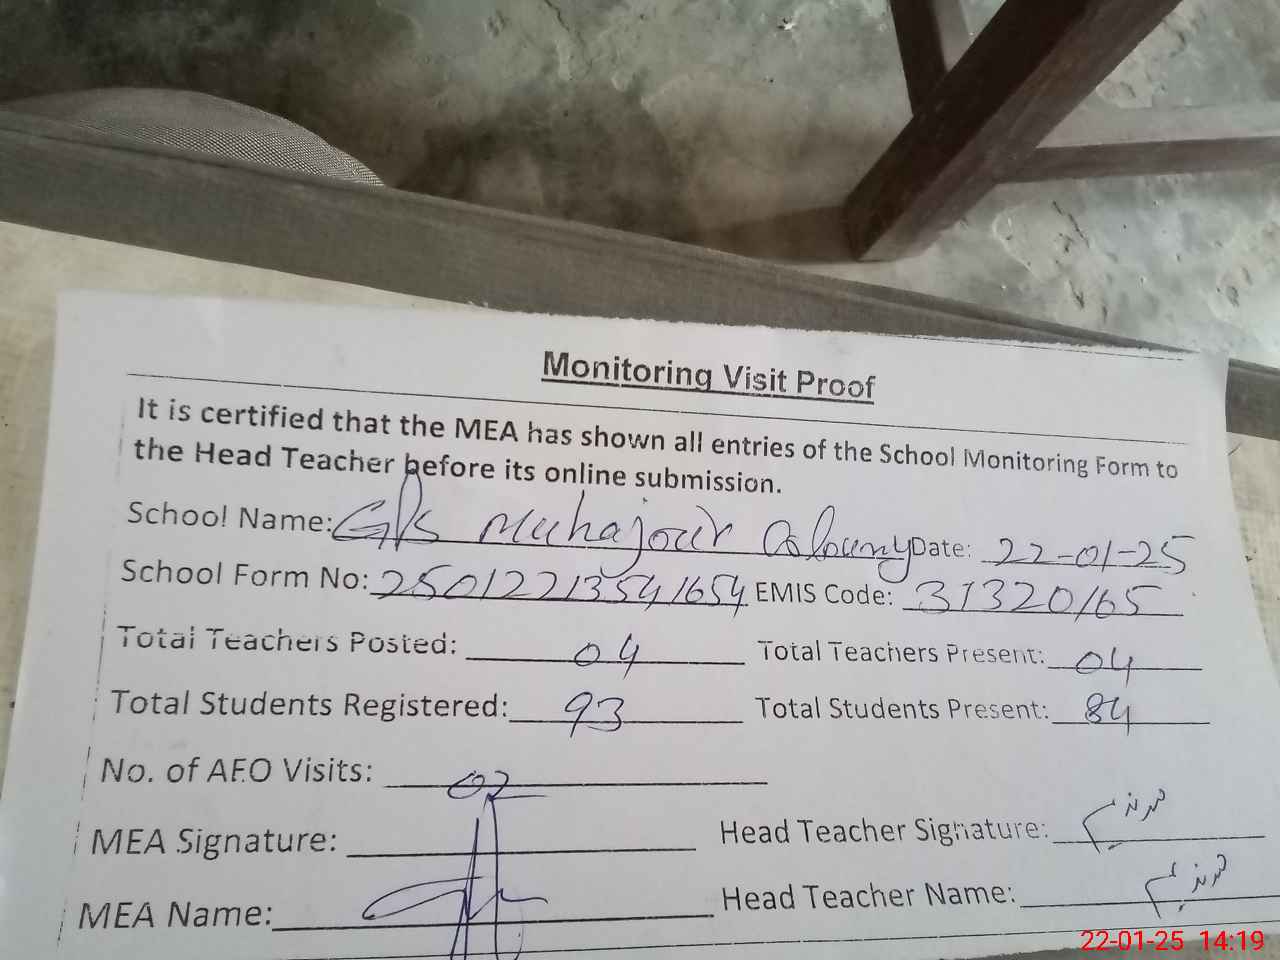 Monitoring Visit Proof
It is certified that the MEA has shown all entries of the School Monitoring Form to
the Head Teacher before its online submission.
School Name: GPS Muhajour Colouny Date: 22-01-25
School Form No: 250122135541654 EMIS Code: 31320165
Total Teachers Posted: 04 Total Teachers Present: 04
Total Students Registered: 93 Total Students Present: 84
No. of AEO Visits: 02
MEA Signature: Head Teacher Signature:
MEA Name: Head Teacher Name:
22-01-25 14:19